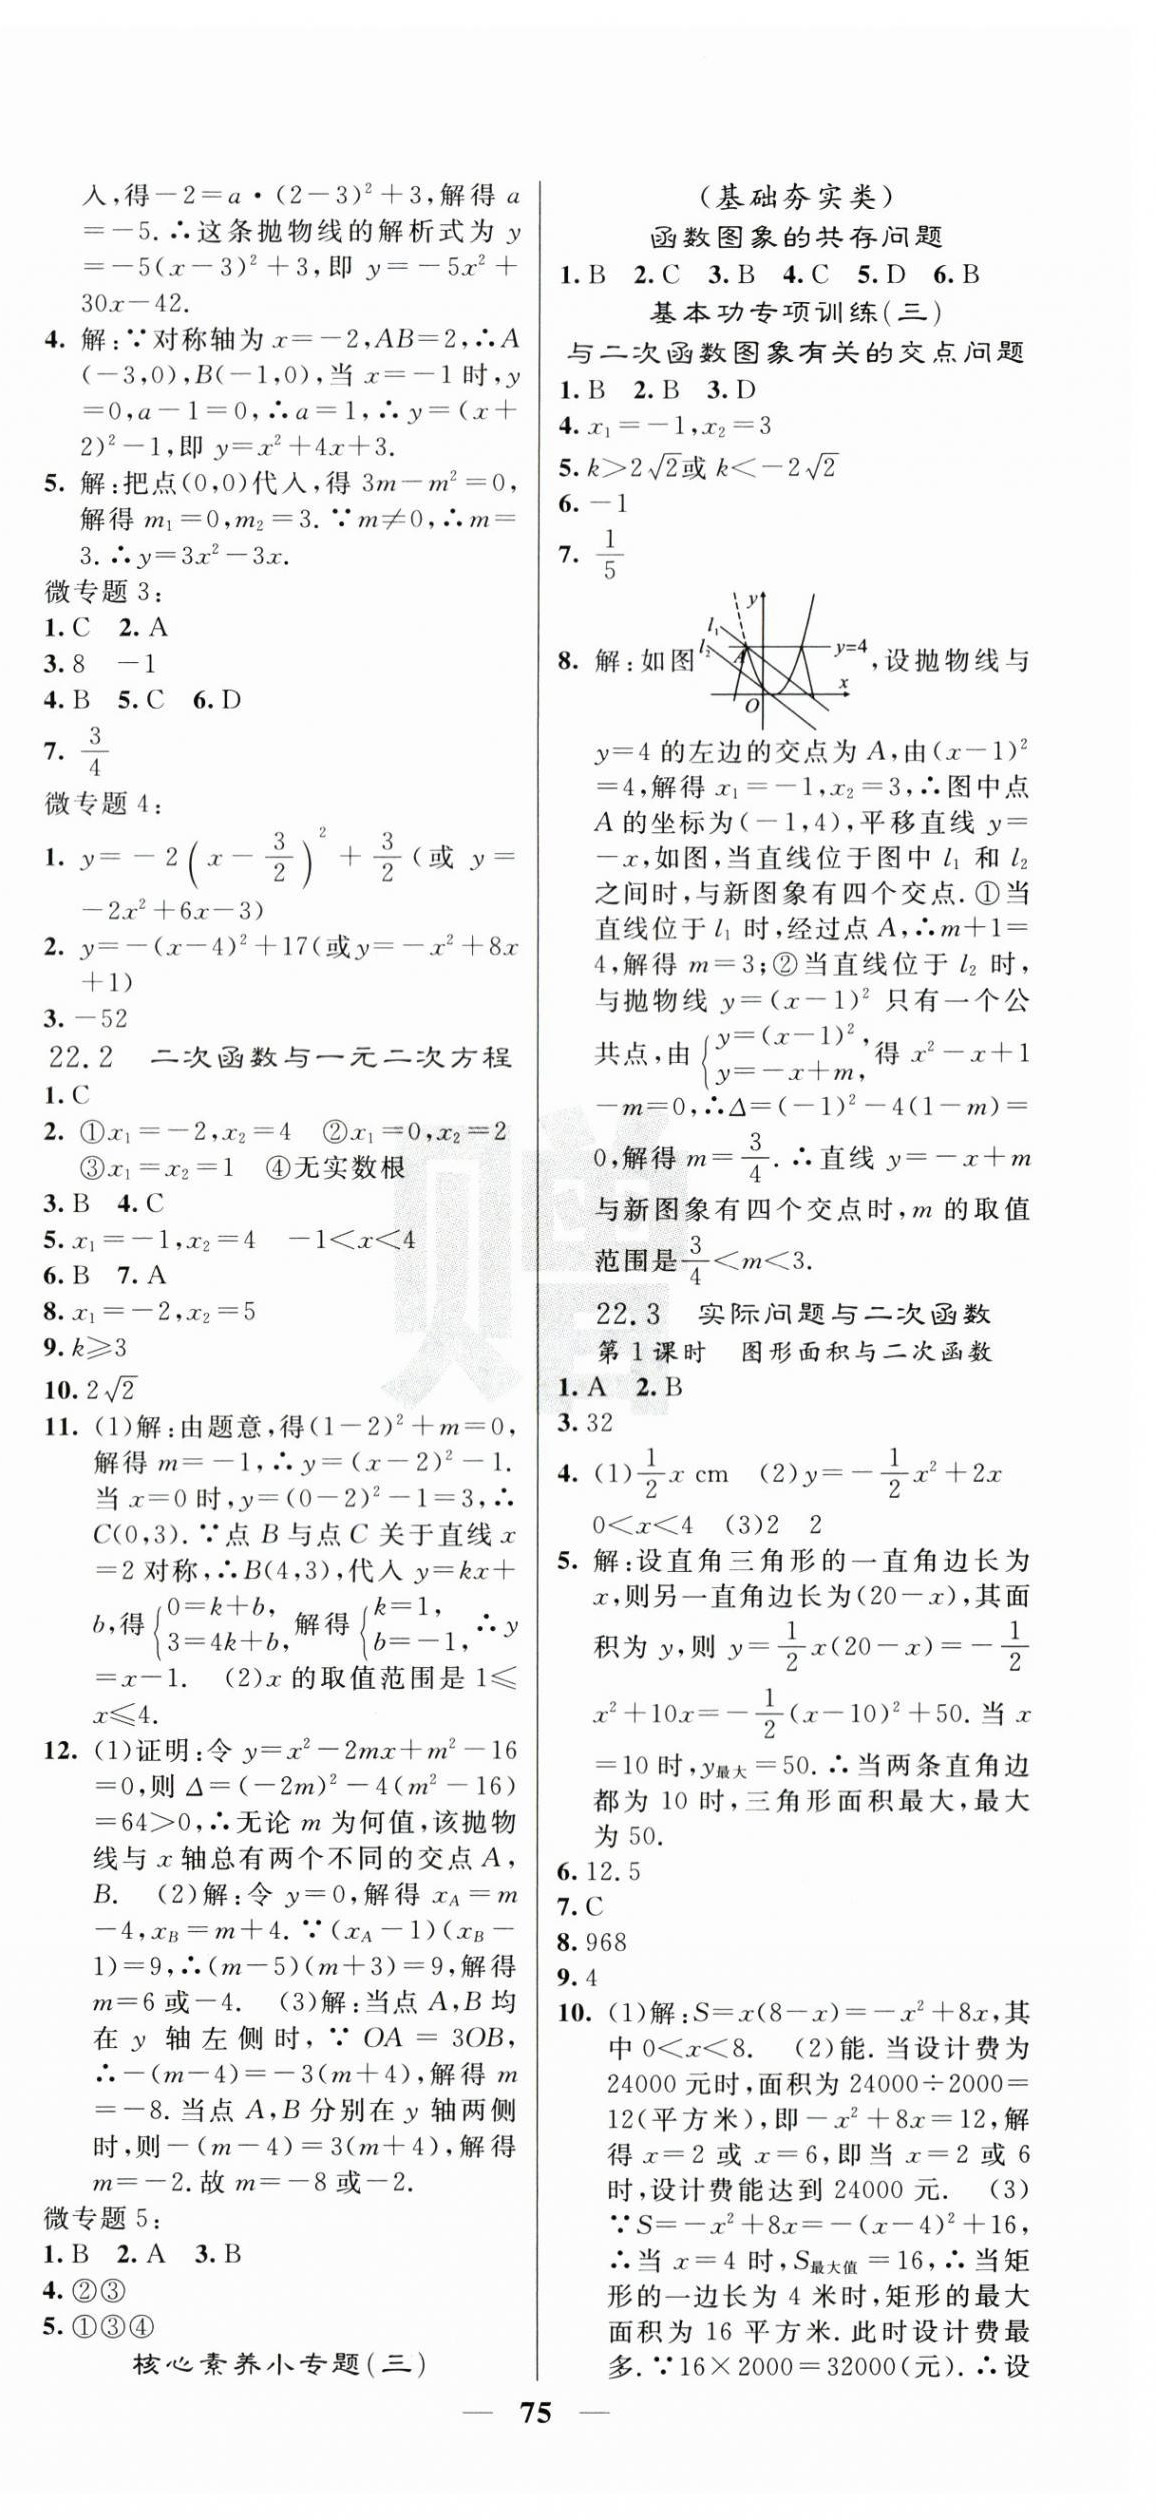 入,得-2=a·(2-3)²+3,解得 a
=-5.∴这条抛物线的解析式为 y
=-5(x-3)²+3,即 y=-5x²+
30x-42.
4. 解:∵对称轴为 x=-2,AB=2,∴A
(-3,0),B(-1,0),当 x=-1 时,y
=0,a-1=0,∴a=1,∴y=(x+
2)²-1,即 y=x²+4x+3.
5. 解:把点(0,0)代入,得 3m-m²=0,
解得 m₁=0,m₂=3.∵m≠0,∴m=
3.∴y=3x²-3x.
微专题 3:
1. C 2. A
3. 8 -1
4. B 5. C 6. D
7. 3/4
微专题 4:
1. y=-2(x-3/2)²+3/2(或 y=
-2x²+6x-3)
2. y=-(x-4)²+17(或y=-x²+8x
+1)
3. -52
22.2 二次函数与一元二次方程
1. C
2. ①x₁=-2,x₂=4 ②x₁=0,x₂=2
③x₁=x₂=1 ④无实数根
3. B 4. C
5. x₁=-1,x₂=4 -1<x<4
6. B 7. A
8. x₁=-2,x₂=5
9. k≥3
10. 2√2
11. (1)解:由题意,得(1-2)²+m=0,
解得 m=-1,∴y=(x-2)²-1.
当 x=0 时,y=(0-2)²-1=3,∴
C(0,3).∵点 B 与点 C 关于直线 x
=2 对称,∴B(4,3),代入 y=kx+
b,得{0=k+b, 3=4k+b, 解得{k=1, b=-1, ∴y
=x-1. (2)x 的取值范围是 1≤
x≤4.
12. (1)证明:令 y=x²-2mx+m²-16
=0,则 Δ=(-2m)²-4(m²-16)
=64>0,∴无论 m 为何值,该抛物
线与 x 轴总有两个不同的交点 A,
B. (2)解:令 y=0,解得 x_A=m
-4,x_B=m+4.∵(x_A-1)(x_B-
1)=9,∴(m-5)(m+3)=9,解得
m=6 或-4. (3)解:当点 A,B 均
在 y 轴左侧时,∵OA=3OB,
∴-(m-4)=-3(m+4),解得 m
=-8.当点 A,B 分别在 y 轴两侧
时,则-(m-4)=3(m+4),解得
m=-2.故 m=-8 或-2.
微专题 5:
1. B 2. A 3. B
4. ②③
5. ①③④
核心素养小专题(三)
(基础夯实类)
函数图象的共存问题
1. B 2. C 3. B 4. C 5. D 6. B
基本功专项训练(三)
与二次函数图象有关的交点问题
1. B 2. B 3. D
4. x₁=-1,x₂=3
5. k>2√2或 k<-2√2
6. -1
7. 1/5
y
l₁
l₂
A
y=4
x
O
8. 解:如图,设抛物线与
y=4 的左边的交点为 A,由(x-1)²
=4,解得 x₁=-1,x₂=3,∴图中点
A 的坐标为(-1,4),平移直线 y=
-x,如图,当直线位于图中 l₁ 和 l₂
之间时,与新图象有四个交点.①当
直线位于 l₁ 时,经过点 A,∴m+1=
4,解得 m=3;②当直线位于 l₂ 时,
与抛物线 y=(x-1)² 只有一个公
共点,由{y=(x-1)², y=-x+m, 得 x²-x+1
-m=0,∴Δ=(-1)²-4(1-m)=
0,解得 m=3/4.∴直线 y=-x+m
与新图象有四个交点时,m 的取值
范围是3/4<m<3.
22.3 实际问题与二次函数
第 1 课时 图形面积与二次函数
1. A 2. B
3. 32
4. (1)1/2x cm (2)y=-1/2x²+2x
0<x<4 (3)2 2
5. 解:设直角三角形的一直角边长为
x,则另一直角边长为(20-x),其面
积为 y,则 y=1/2x(20-x)=-1/2
x²+10x=-1/2(x-10)²+50.当 x
=10 时,y最大=50.∴当两条直角边
都为 10 时,三角形面积最大,最大
为 50.
6. 12.5
7. C
8. 968
9. 4
10. (1)解:S=x(8-x)=-x²+8x,其
中 0<x<8. (2)能.当设计费为
24000 元时,面积为 24000÷2000=
12(平方米),即-x²+8x=12,解
得 x=2 或 x=6,即当 x=2 或 6
时,设计费能达到 24000 元. (3)
∵S=-x²+8x=-(x-4)²+16,
∴当 x=4 时,S最大值=16,∴当矩
形的一边长为 4 米时,矩形的最大
面积为 16 平方米.此时设计费最
多.∵16×2000=32000(元).∴设
— 75 —